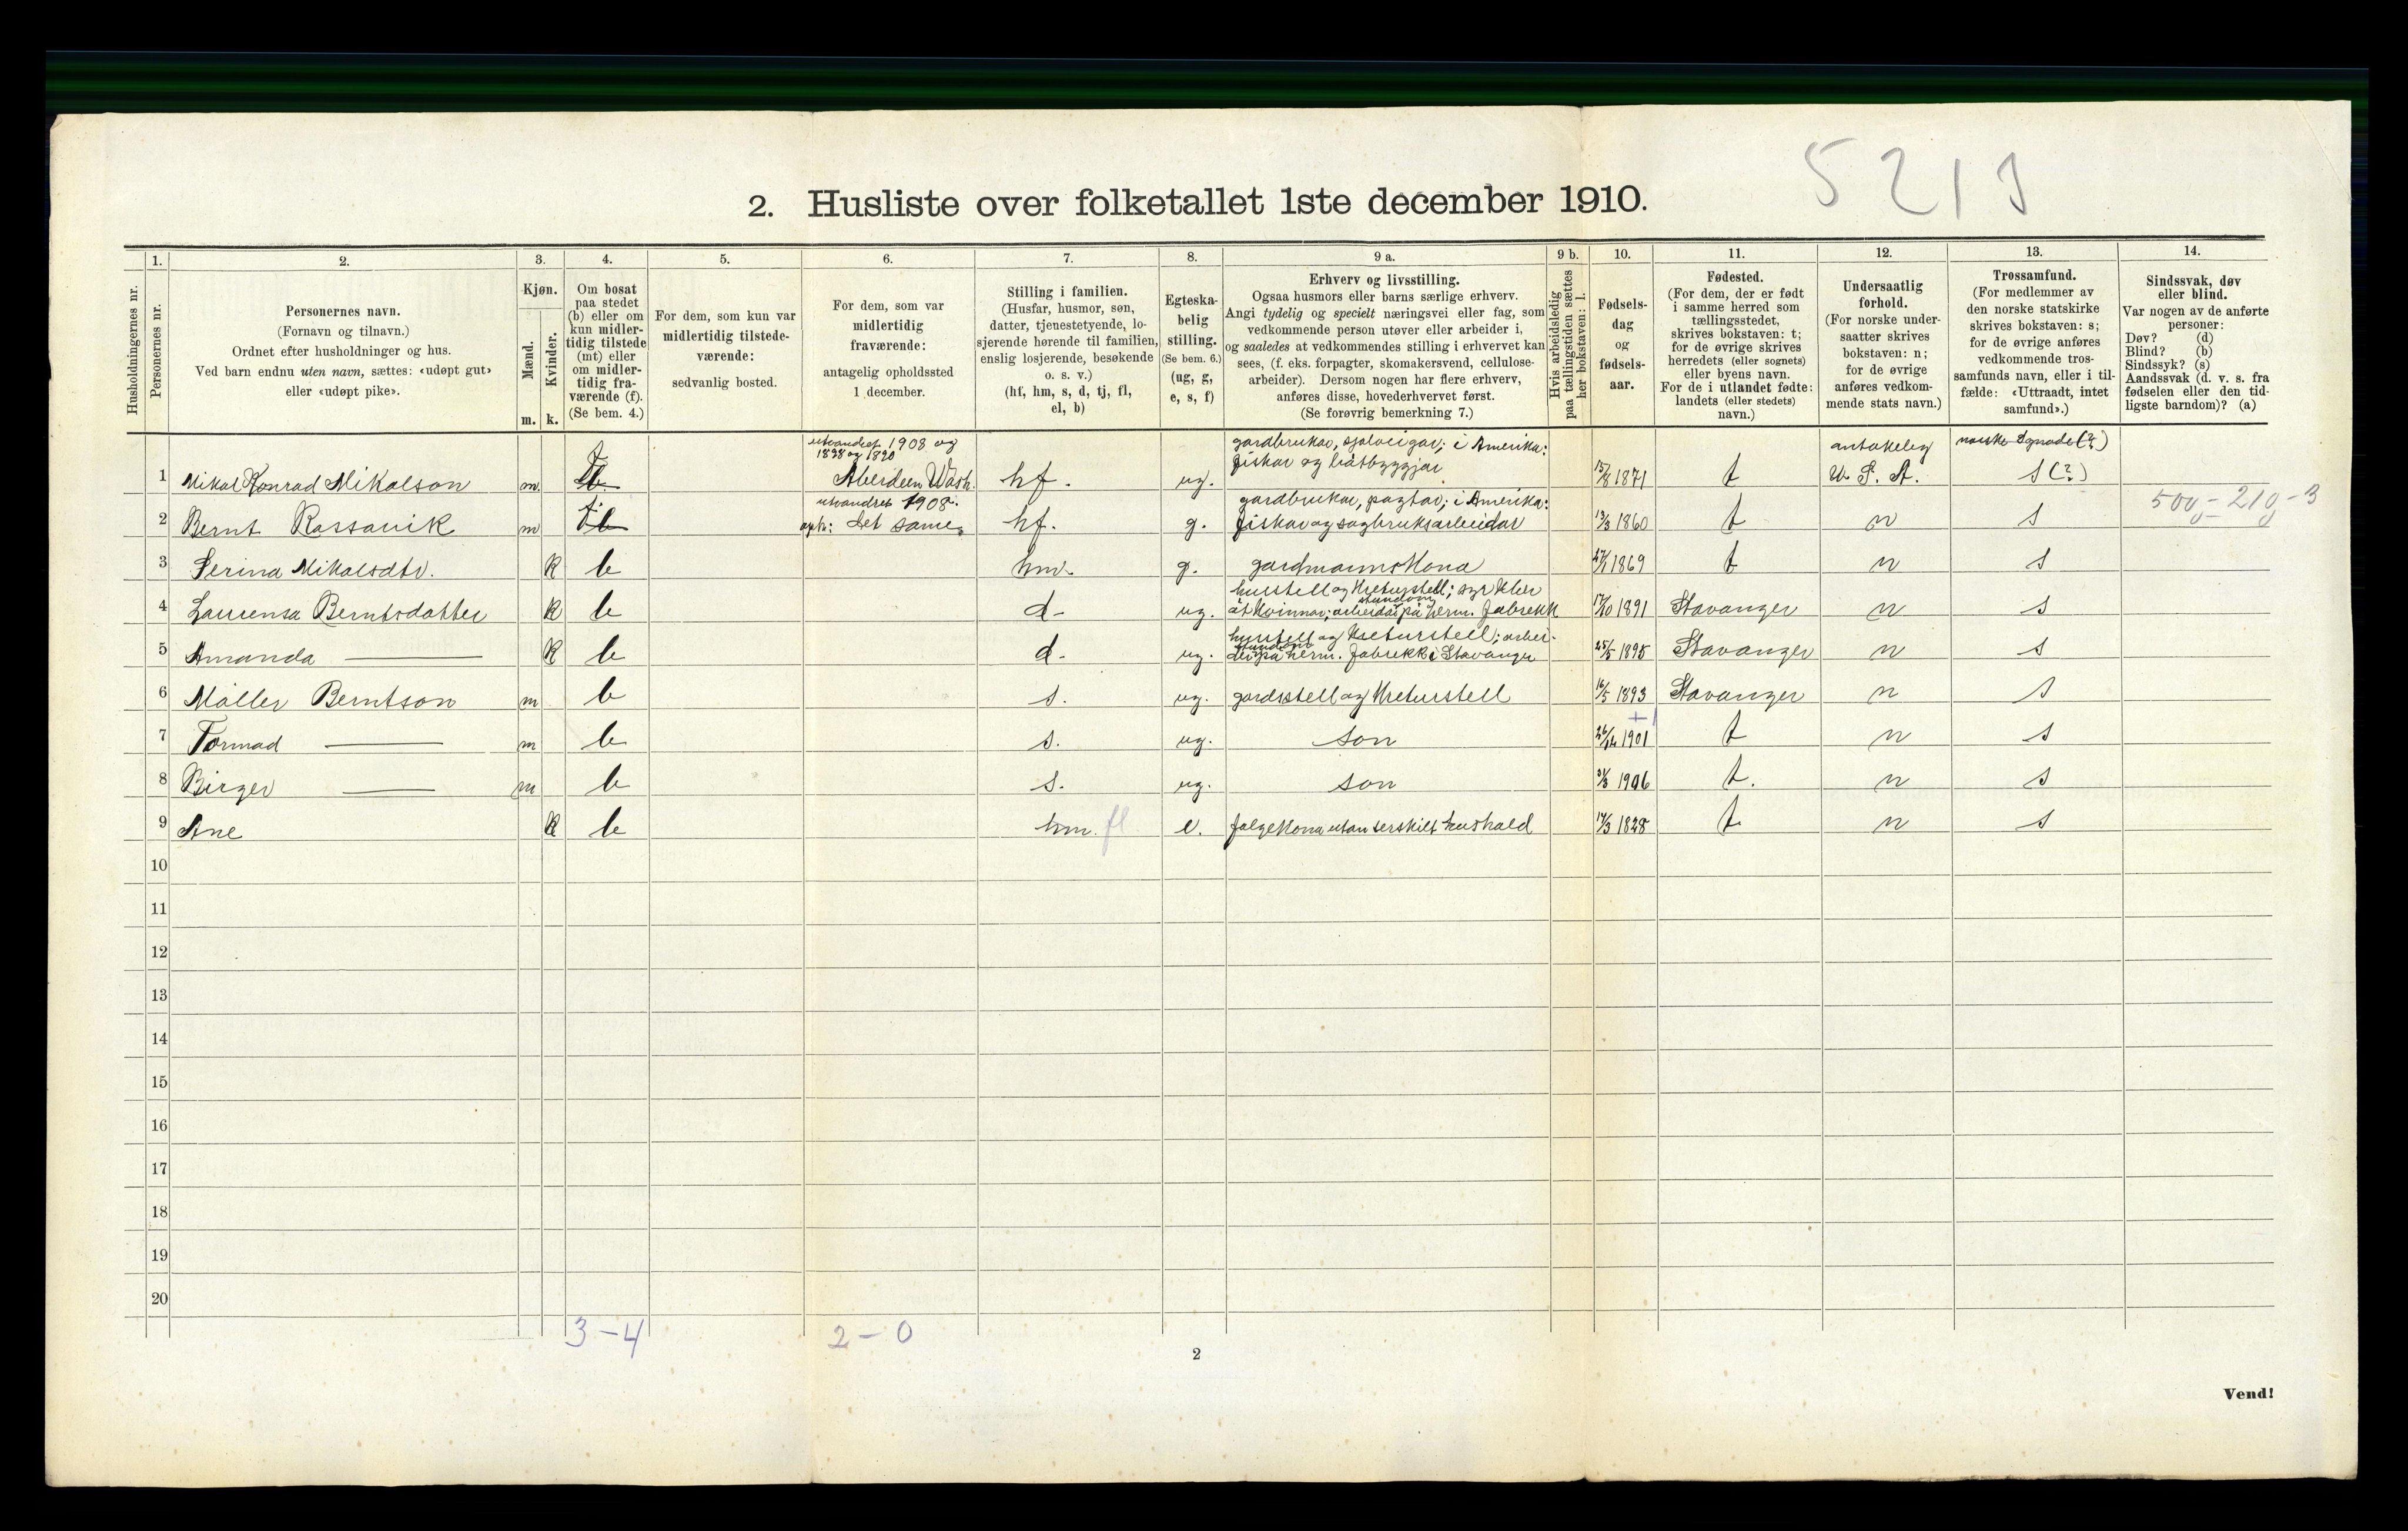 5213
2. Husliste over folketallet 1ste december 1910.
Husholdningernes nr.
1. Personernes nr.
2. Personernes navn.
(Fornavn og tilnavn.)
Ordnet efter husholdninger og hus.
Ved barn endnu uten navn, sættes: «udøpt gut»
eller «udøpt pike».
3. Kjøn.
Mænd. m.
Kvinder. k.
4. Om bosat
paa stedet
(b) eller om
kun midler-
tidig tilstede
(mt) eller
om midler-
tidig fra-
værende (f).
(Se bem. 4.)
5. For dem, som kun var
midlertidig tilstede-
værende:
sedvanlig bosted.
6. For dem, som var
midlertidig
fraværende:
antagelig opholdssted
1 december.
7. Stilling i familien.
(Husfar, husmor, søn,
datter, tjenestetyende, lo-
sjerende hørende til familien,
enslig losjerende, besøkende
o. s. v.)
(hf, hm, s, d, tj, fl,
el, b)
8. Egteska-
belig
stilling.
(Se bem. 6.)
(ug, g,
e, s, f)
9 a. Erhverv og livsstilling.
Ogsaa husmors eller barns særlige erhverv.
Angi tydelig og specielt næringsvei eller fag, som
vedkommende person utøver eller arbeider i,
og saaledes at vedkommendes stilling i erhvervet kan
sees, (f. eks. forpagter, skomakersvend, cellulose-
arbeider). Dersom nogen har flere erhverv,
anføres disse, hovederhvervet først.
(Se forøvrig bemerkning 7.)
9 b. Hvis arbeidsledig
paa tællingstiden sættes
her bokstaven: l.
10. Fødsels-
dag
og
fødsels-
aar.
11. Fødested.
(For dem, der er født
i samme herred som
tællingsstedet,
skrives bokstaven: t;
for de øvrige skrives
herredets (eller sognets)
eller byens navn.
For de i utlandet fødte:
landets (eller stedets)
navn.)
12. Undersaatlig
forhold.
(For norske under-
saatter skrives
bokstaven: n;
for de øvrige
anføres vedkom-
mende stats navn.)
13. Trossamfund.
(For medlemmer av
den norske statskirke
skrives bokstaven: s;
for de øvrige anføres
vedkommende tros-
samfunds navn, eller i til-
fælde: «Uttraadt, intet
samfund».)
14. Sindssvak, døv
eller blind.
Var nogen av de anførte
personer:
Døv? (d)
Blind? (b)
Sindssyk? (s)
Aandssvak (d. v. s. fra
fødselen eller den tid-
ligste barndom)? (a)
utvandret 1908 og gardbrukar, sjølveigar; i Amerika: antakeleg norske
1 Mikal Konrad Mikalson m. Aberdeen Wash. hf. ug. fiskar og båtbyggjar 15/8 1871 t U. S. A. s (?)
utvandret 1908. gardbrukar, pagtar; i Amerika: 500-210-3
2 Bernt Rossavik m det same. hf. g. fiskar og sagbruksarbeidar 13/3 1860 t n s
3 Serina Mikalsdtr. k b hm. g. gardmannskona 1869 t n s
husstell og kreturstell; syr klær
4 Laurensa Berntsdatter k b d- ug. åt kvinnor; arbeidar stundom på herm. fabrekk 17/10 1891 Stavanger n s
husstell og kreturstell; arbei-
5 Amanda — k b d. ug. der stundom på herm. fabrekk i Stavanger 25/5 1895 Stavanger n s
6 Møller Berntson m b s. ug. gardsstell og kreturstell 16/5 1893 Stavanger n s
7 Tormod — m b s. ug. son 26/12 1901 t n s
8 Birger — m b s. ug. son 3/3 1906 t. n s
9 Ane k b hm. fl e. folgekona utan serskilt hushald 17/3 1828 t n s
10
11
12
13
14
15
16
17
18
19
20
3-4 2-0
2
Vend!